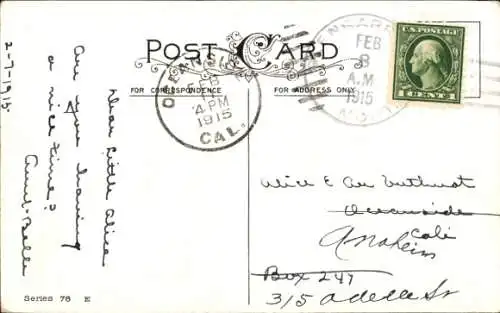 POST CARD
FOR CORRESPONDENCE
FOR ADDRESS ONLY
2-7-1915
Dear Little Alice
Are you having
a nice time?
Aunt-Belle
OCEANSIDE
8
4 PM
1915
CAL.
FEB
8
A.M.
1915
U.S. POSTAGE
1 CENT 1
Alice E
Oceanside
Cali
Anaheim
Box 247
315 Adelle St
Series 76 E